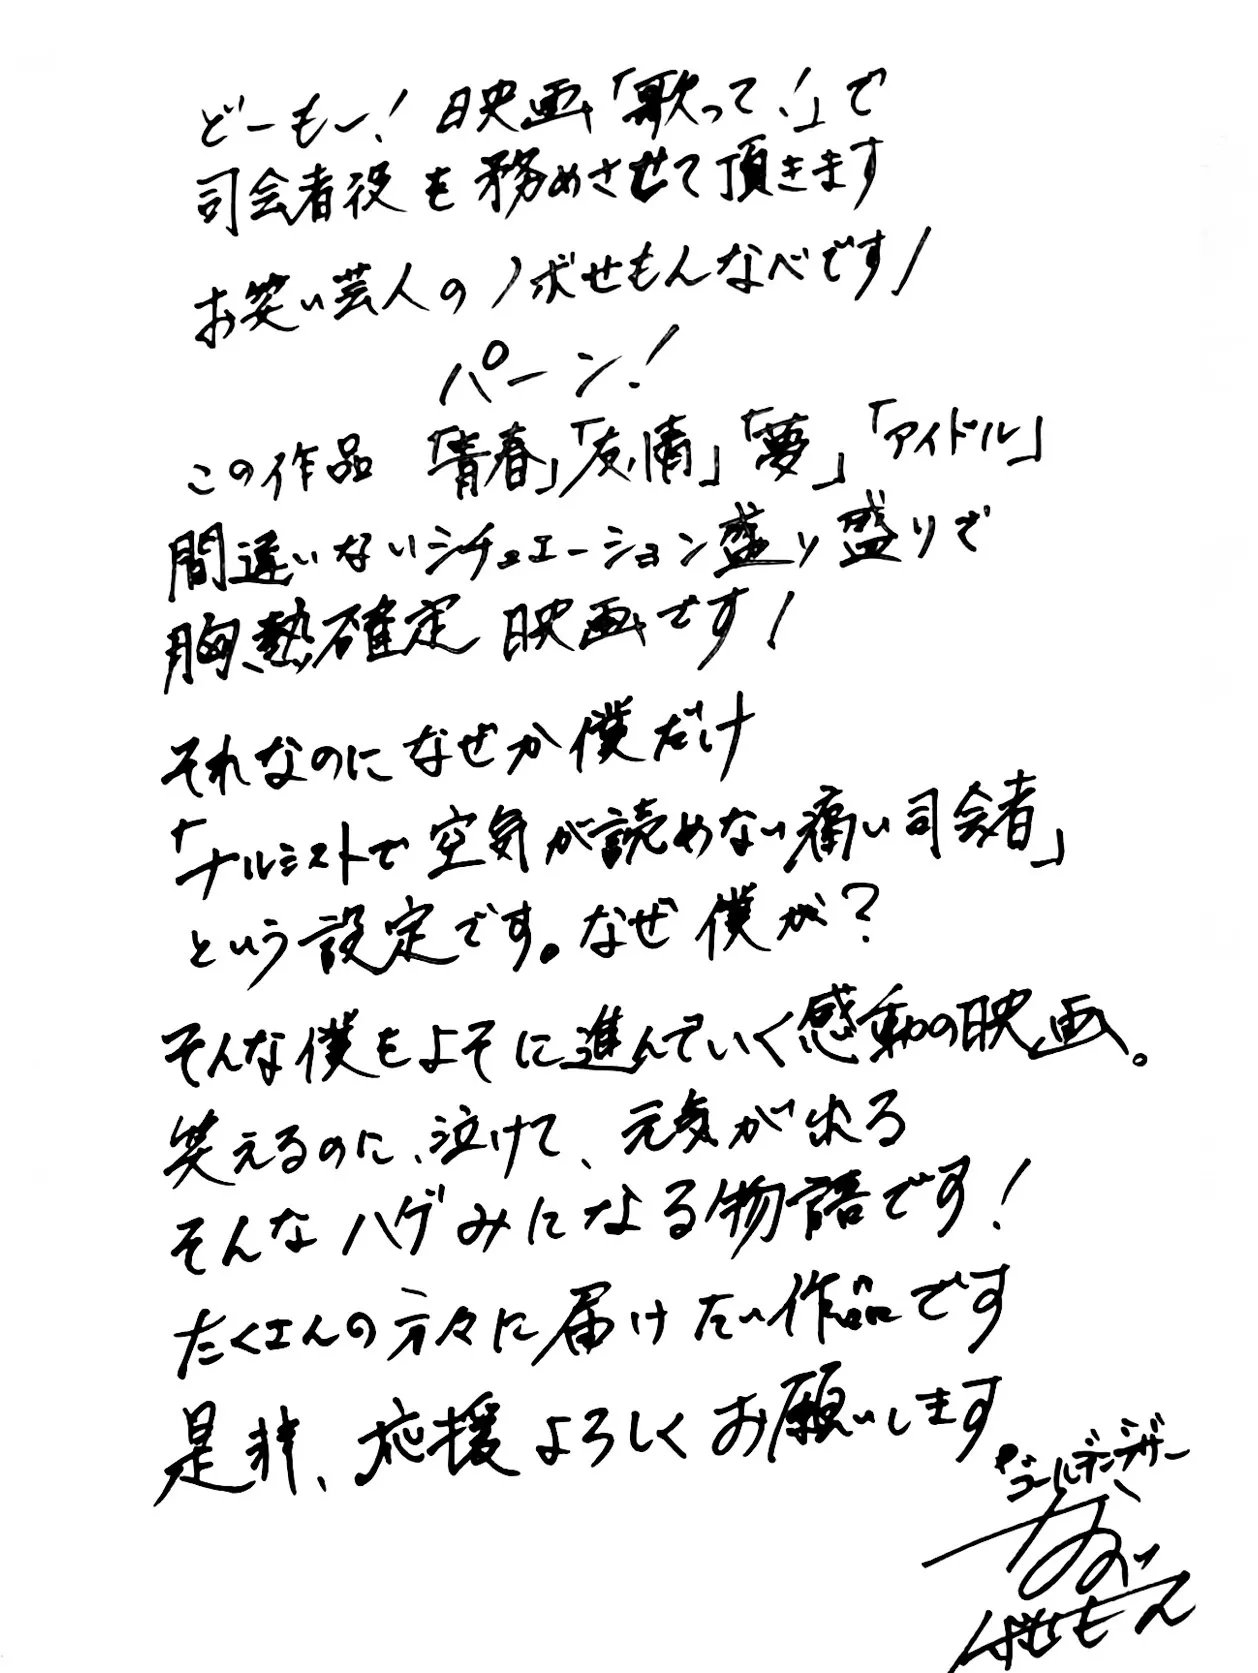 どーもー! 映画「歌って!」で
司会者役を務めさせて頂きます
お笑い芸人のノボせもんなべです!
パーン!
この作品 「青春」「友情」「夢」「アイドル」
間違いないシチュエーション盛り盛りで
胸熱確定 映画です!
それなのになぜか僕だけ
「ナルシストで空気が読めない痛い司会者」
という設定です。なぜ僕が?
そんな僕もよそに進んでいく感動の映画。
笑えるのに、泣けて、元気が出る
そんなハゲみになる物語です!
たくさんの方々に届けたい作品です
是非、応援よろしくお願いします